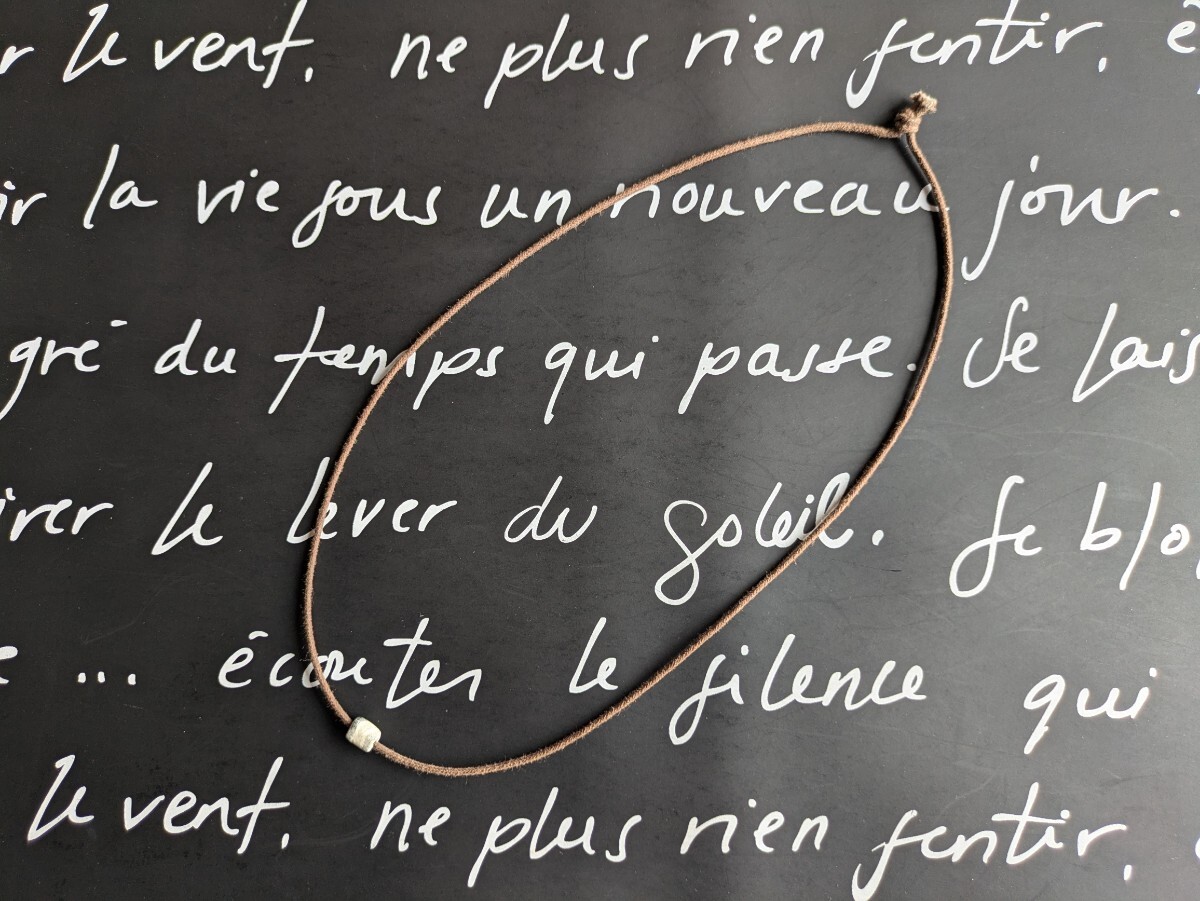 r le vent, ne plus rien sentir, ê
ir la vie sous un nouveau jour.
gré du temps qui passe. Je lais
irer le lever du soleil. Je blo
e ... écouter le silence qui
le vent, ne plus rien sentir,